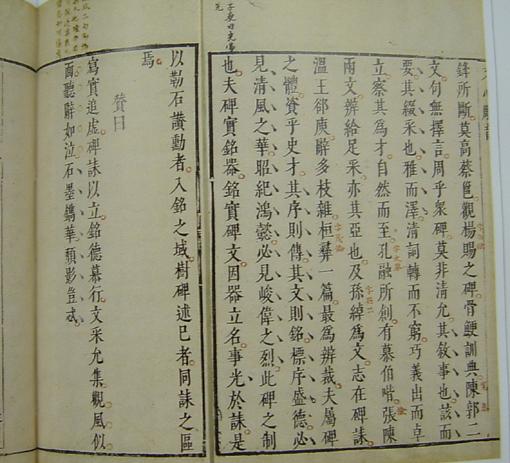 鋒所斷莫高蔡邕觀楊賜之碑骨鯁訓典陳郭二
文句無擇言周乎衆碑莫非清允其敘事也該而
要其綴采也雅而澤清詞轉而不窮巧義出而卓
立察其為才自然而至孔融所創有慕伯喈張陳
兩文辨給足采亦其亞也及孫綽為文志在碑誄
溫王郤庾辭多枝雜桓彝一篇最為辨裁夫屬碑
之體資乎史才其序則傳其文則銘標序盛德必
見清風之華昭紀鴻懿必見峻偉之烈此碑之制
也夫碑實銘器銘實碑文因器立名事光於誄是
以勒石讚勳者入銘之域樹碑述巳者同誄之區
焉
贊曰
寫實追虛碑誄以立銘德慕行文采允集觀風似
面聽辭如泣石墨鐫華頹影豈忒